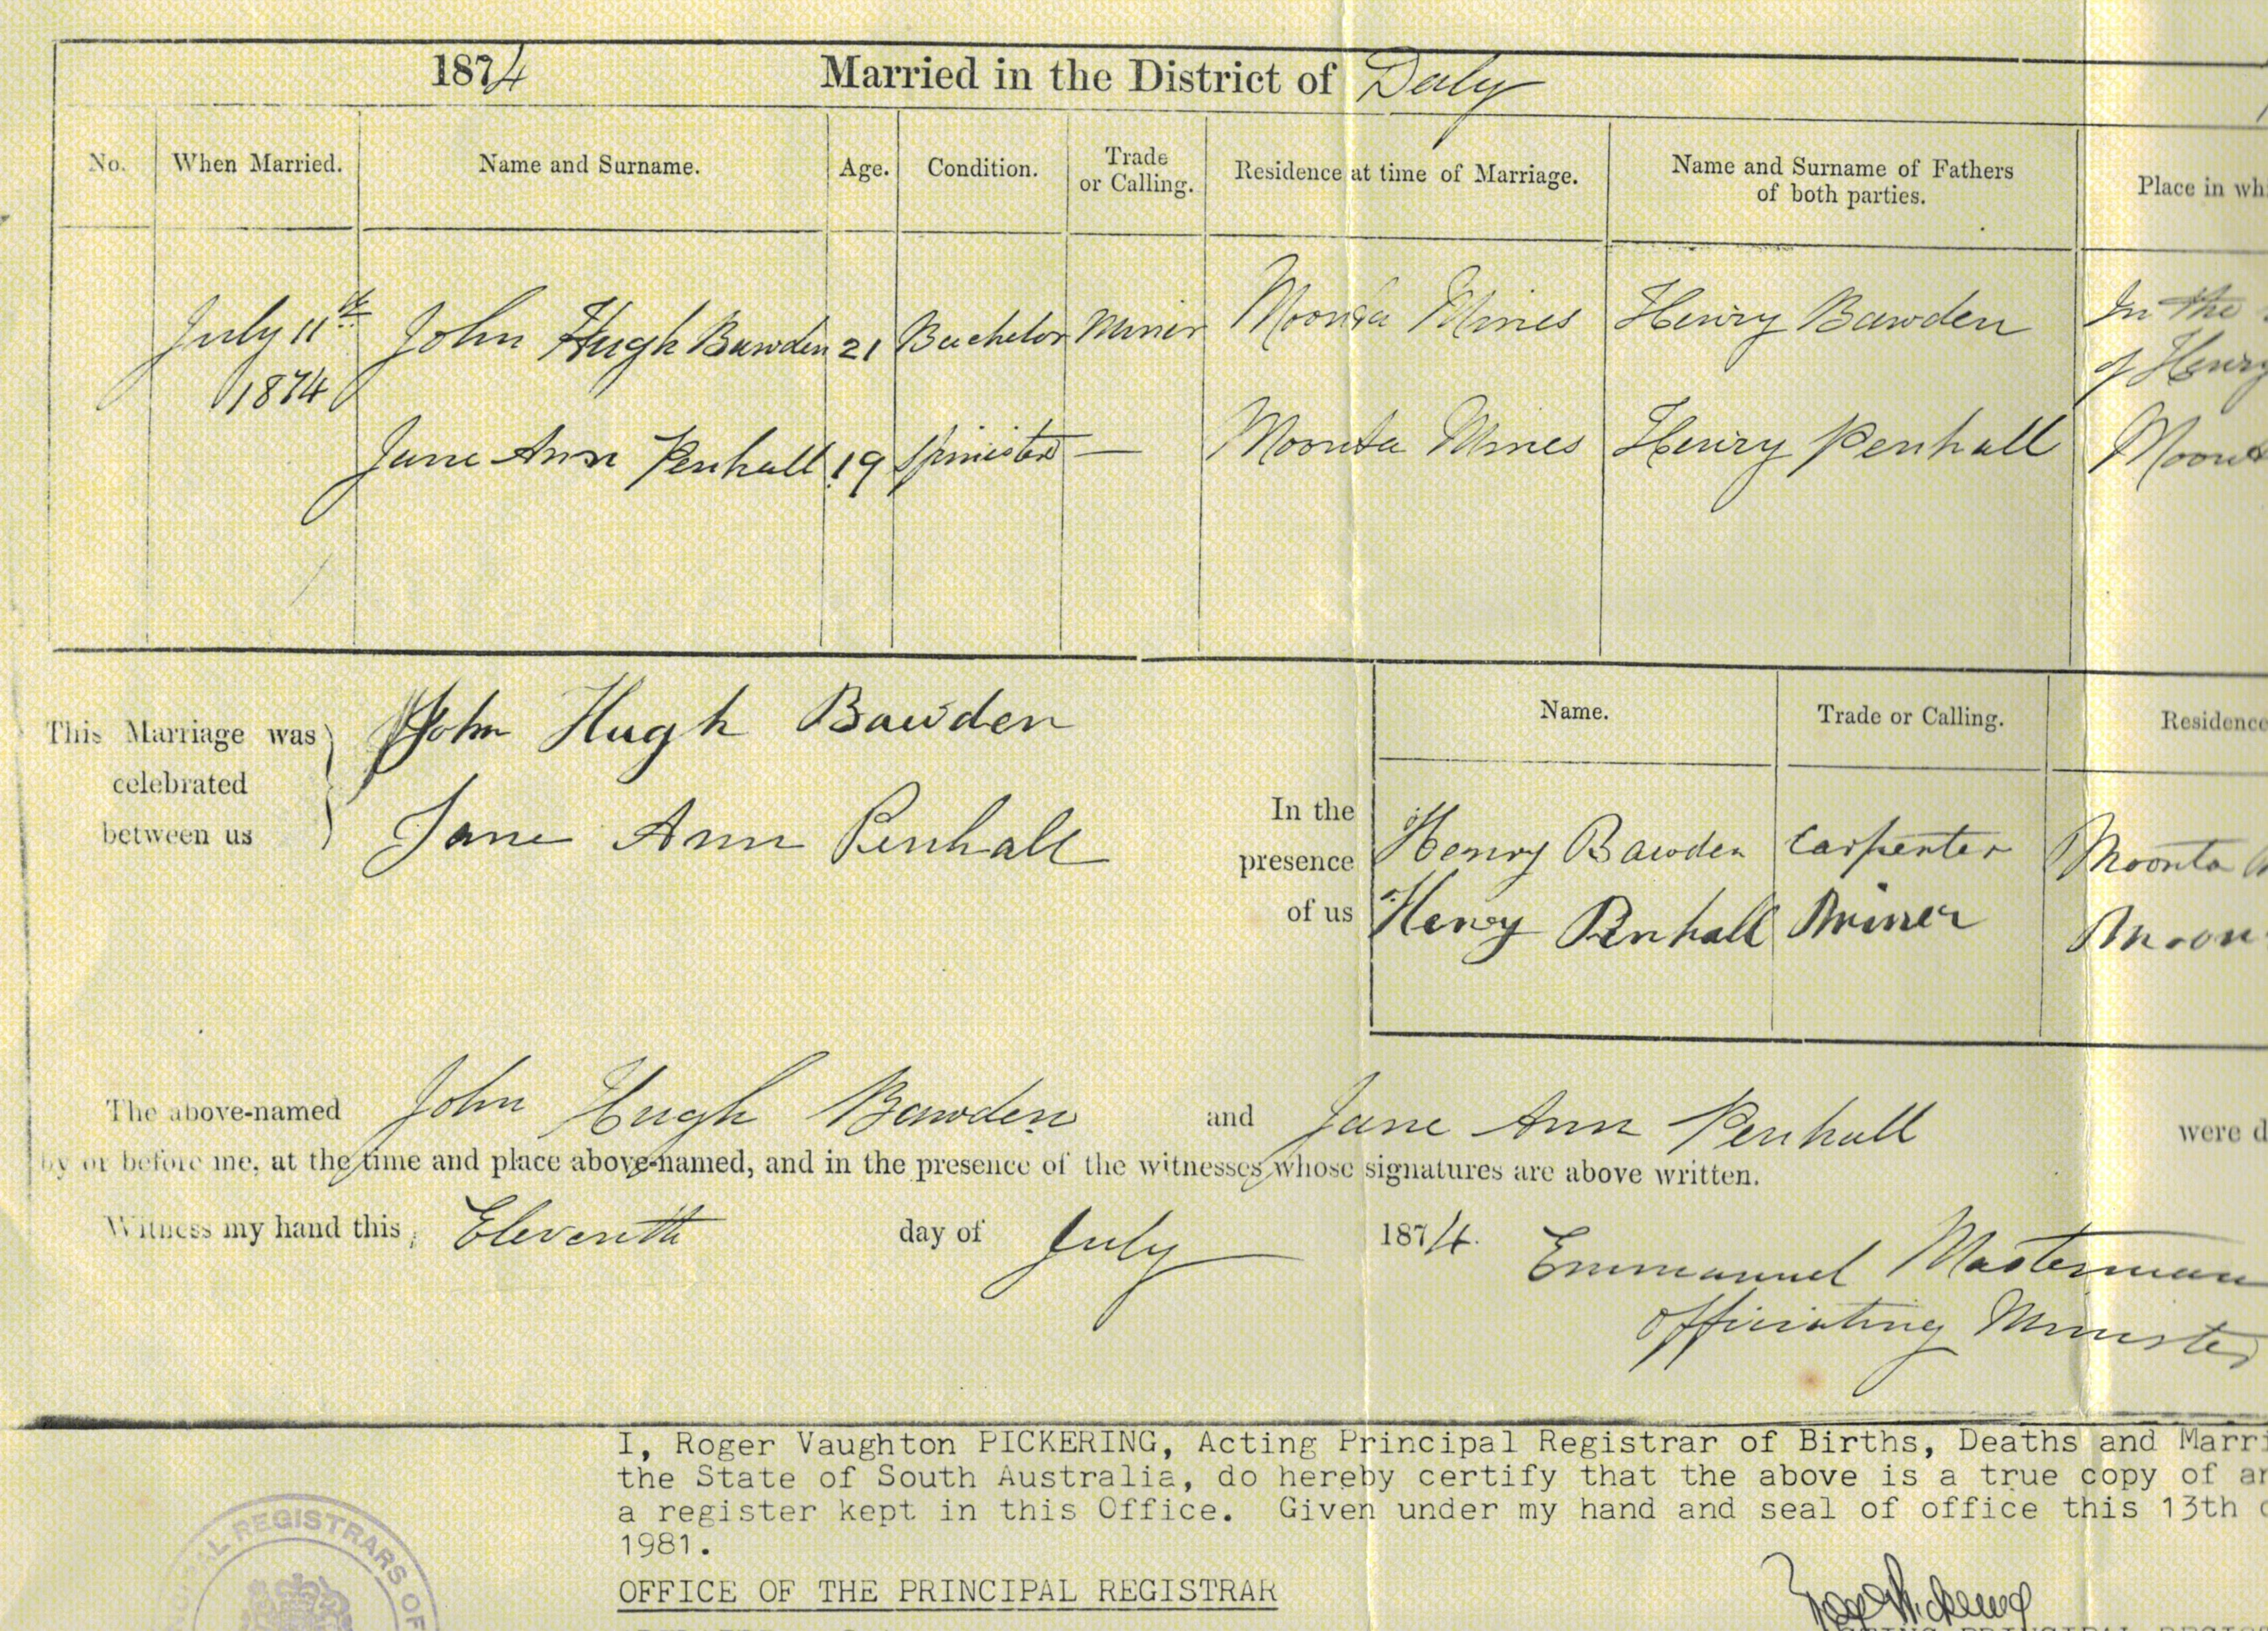 1874 Married in the District of Daly
No. When Married. Name and Surname. Age. Condition. Trade or Calling. Residence at time of Marriage. Name and Surname of Fathers of both parties. Place in wh
July 11th 1874 John Hugh Bawden 21 Bachelor Miner Moonta Mines Henry Bawden In the
of Henry
Jane Ann Penhall 19 Spinister — Moonta Mines Henry Penhall Moont
This Marriage was celebrated between us
John Hugh Bawden
Jane Ann Penhall
In the presence of us
Name. Trade or Calling. Residence
Henry Bawden Carpenter Moonta
Henry Penhall Miner Moon
The above-named John Hugh Bawden and Jane Ann Penhall were d
by or before me, at the time and place above-named, and in the presence of the witnesses whose signatures are above written.
Witness my hand this Eleventh day of July 1874.
Emmanuel Masterman
Officiating Minister
I, Roger Vaughton PICKERING, Acting Principal Registrar of Births, Deaths and Marri
the State of South Australia, do hereby certify that the above is a true copy of an
a register kept in this Office. Given under my hand and seal of office this 13th
1981.
OFFICE OF THE PRINCIPAL REGISTRAR
REGISTRARS OF